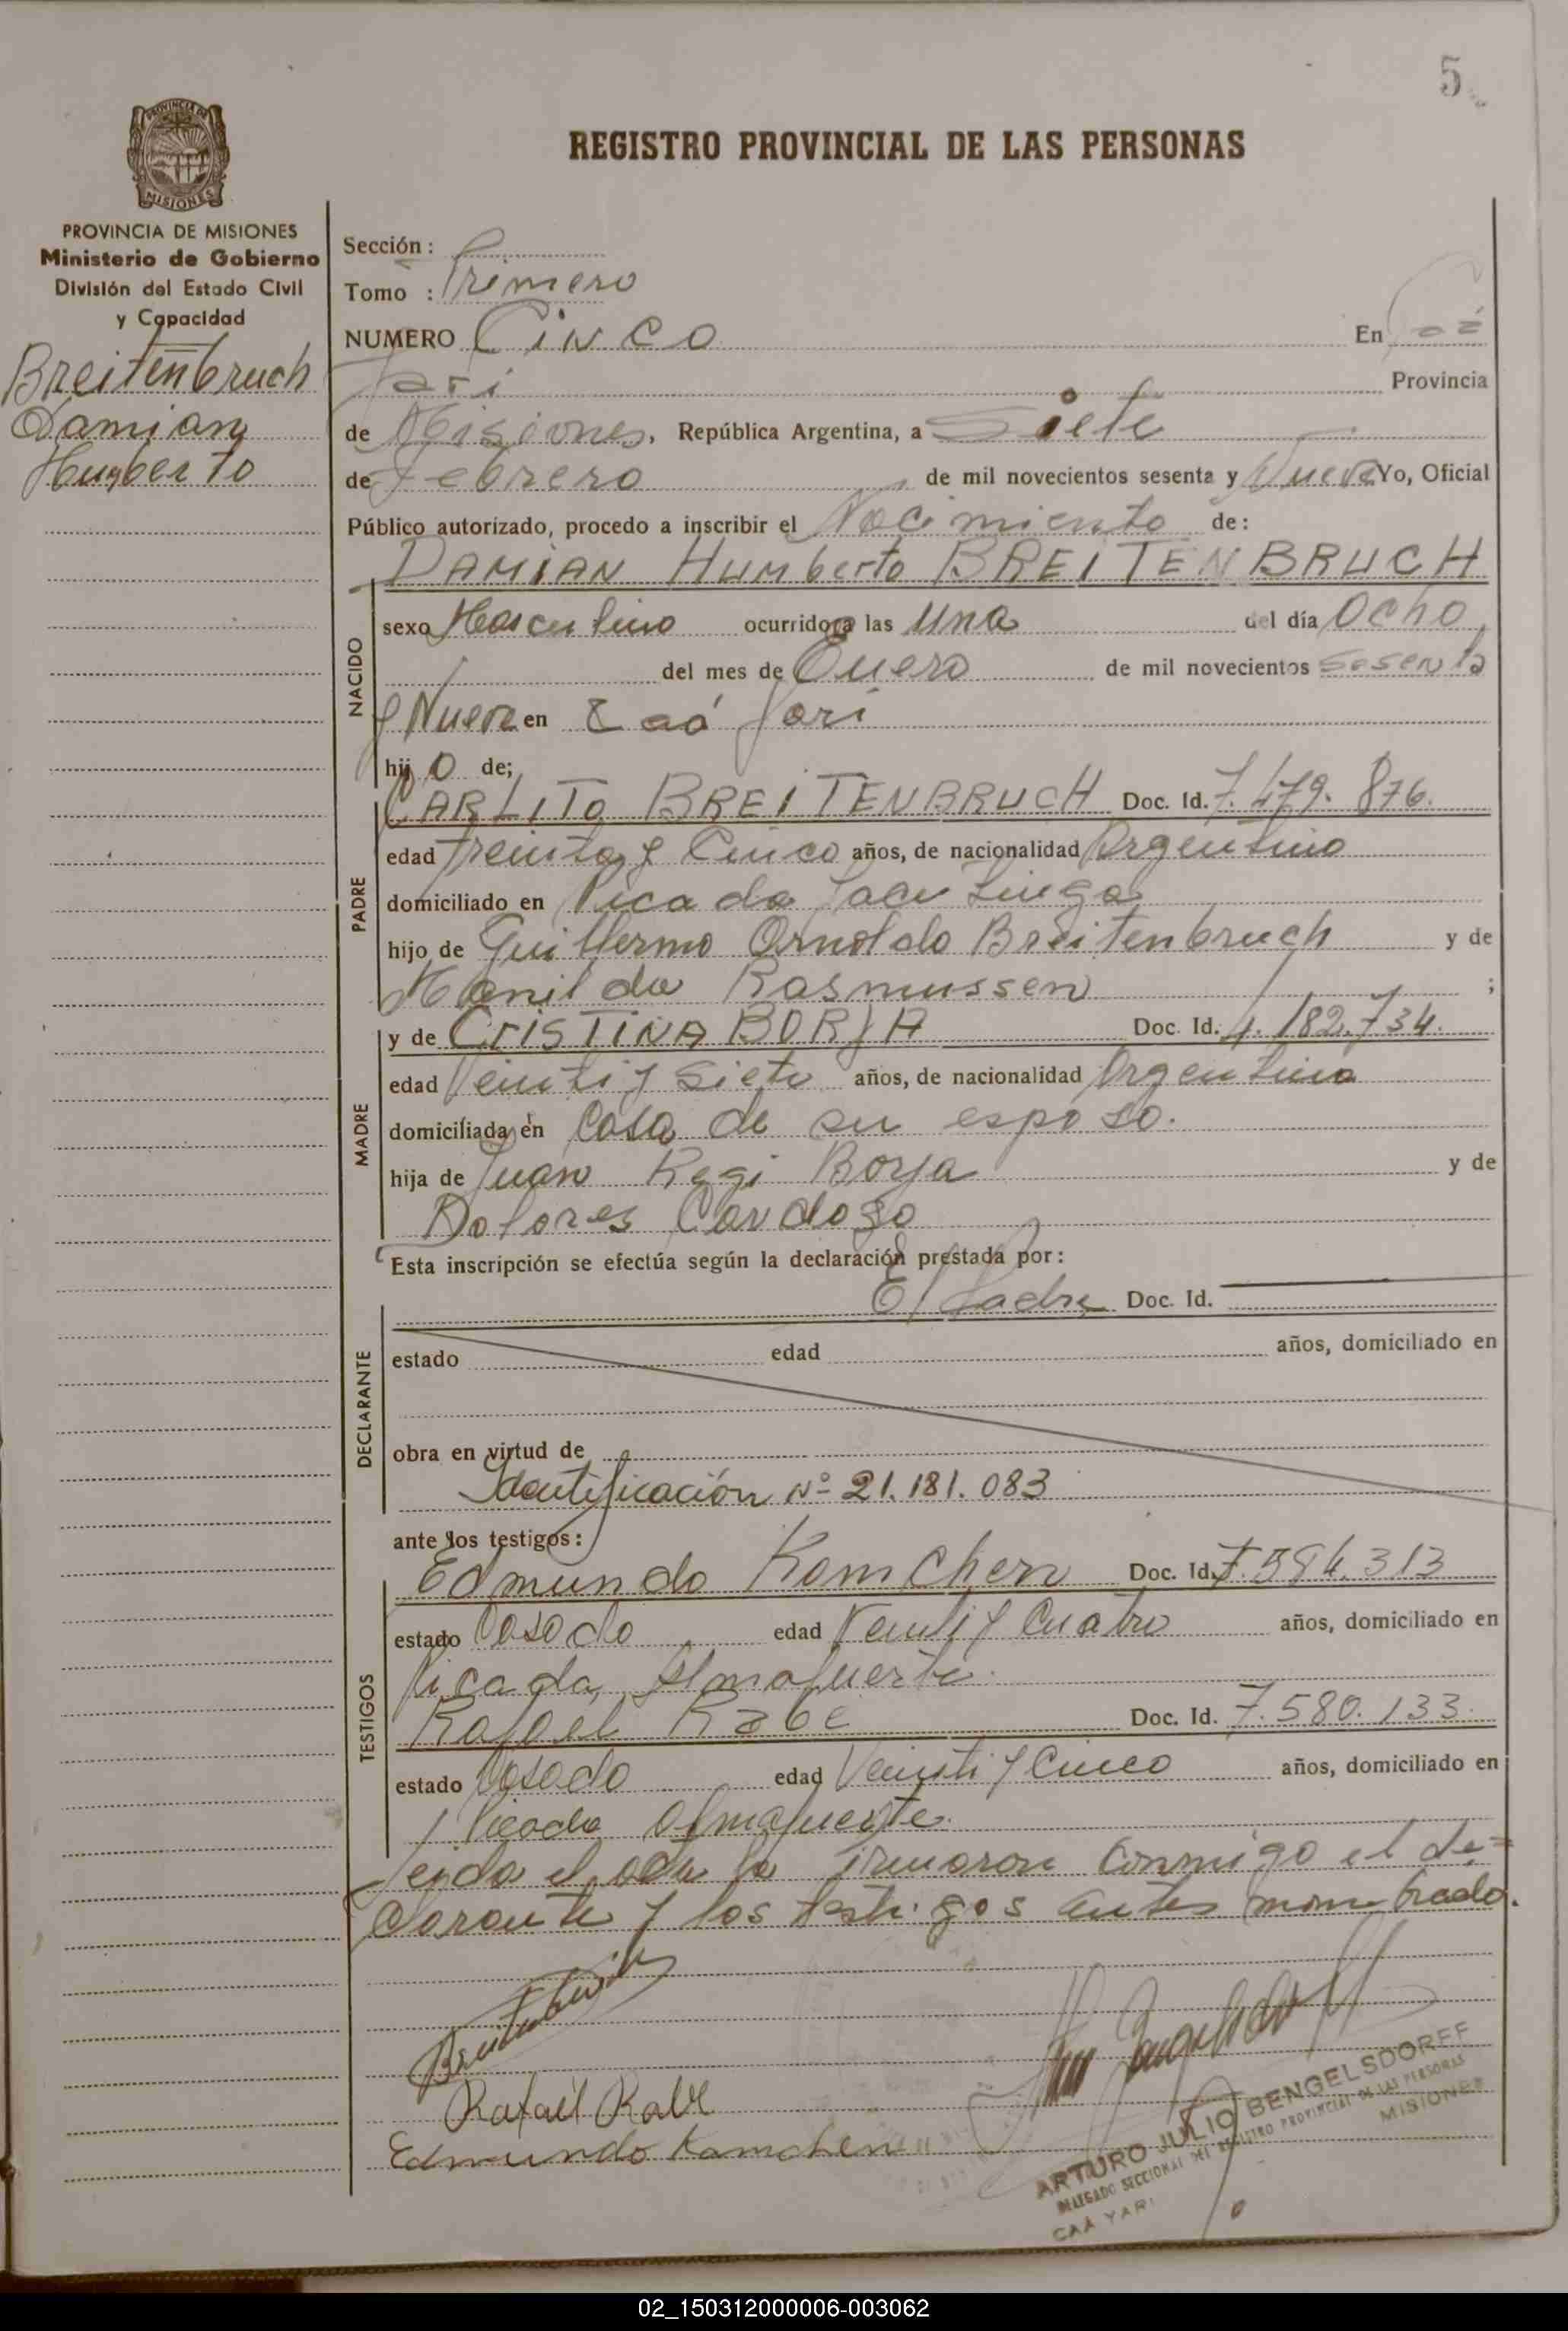 5
PROVINCIA DE
MISIONES
REGISTRO PROVINCIAL DE LAS PERSONAS
PROVINCIA DE MISIONES
Ministerio de Gobierno
División del Estado Civil
y Capacidad
Breitenbruch
Damian
Humberto
Sección :
Tomo : Primero
NUMERO Cinco En Caá
Yari Provincia
de Misiones, República Argentina, a Siete
de Febrero de mil novecientos sesenta y Nueve Yo, Oficial
Público autorizado, procedo a inscribir el Nacimiento de:
DAMIAN Humberto BREITENBRUCH
NACIDO
sexo Masculino ocurrido a las Una del día Ocho
del mes de Enero de mil novecientos Sesenta
y Nueve en Caá Yari
hijo de;
PADRE
CARLITO BREITENBRUCH Doc. Id. 7.479.876.
edad Treinta y Cinco años, de nacionalidad Argentino
domiciliado en Picada
hijo de Guillermo Arnoldo Breitenbruch y de
Rasmussen ;
MADRE
y de CRISTINA BORJA Doc. Id. 4.182.734.
edad Veinti y Siete años, de nacionalidad Argentina
domiciliada en Casa de su esposo.
hija de Juan Regi Borja y de
Dolores Cardozo
Esta inscripción se efectúa según la declaración prestada por:
DECLARANTE
El Padre Doc. Id.
estado edad años, domiciliado en
obra en virtud de
Identificación Nº 21.181.083
ante los testigos:
TESTIGOS
Edmundo Kamchen Doc. Id. 7.594.313
estado Casado edad Veinti y Cuatro años, domiciliado en
Picada Almafuerte.
Rafael Rabe Doc. Id. 7.580.133.
estado Casado edad Veinti y Cinco años, domiciliado en
Picada Almafuerte.
Leida el acta la firmaron conmigo el de=
clarante y los testigos antes nombrado.
Rafael Rabe
Edmundo Kamchen
ARTURO JULIO BENGELSDORFF
DELEGADO SECCIONAL DEL REGISTRO PROVINCIAL DE LAS PERSONAS
CAÁ YARI MISIONES
02_150312000006-003062